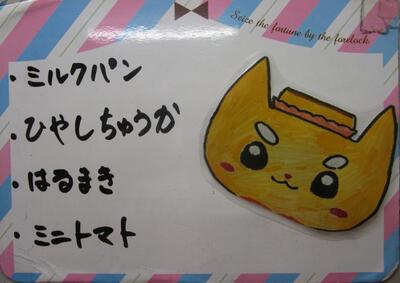 Seize the fortune by the forelock.
・ミルクパン
・ひやしちゅうか
・はるまき
・ミニトマト